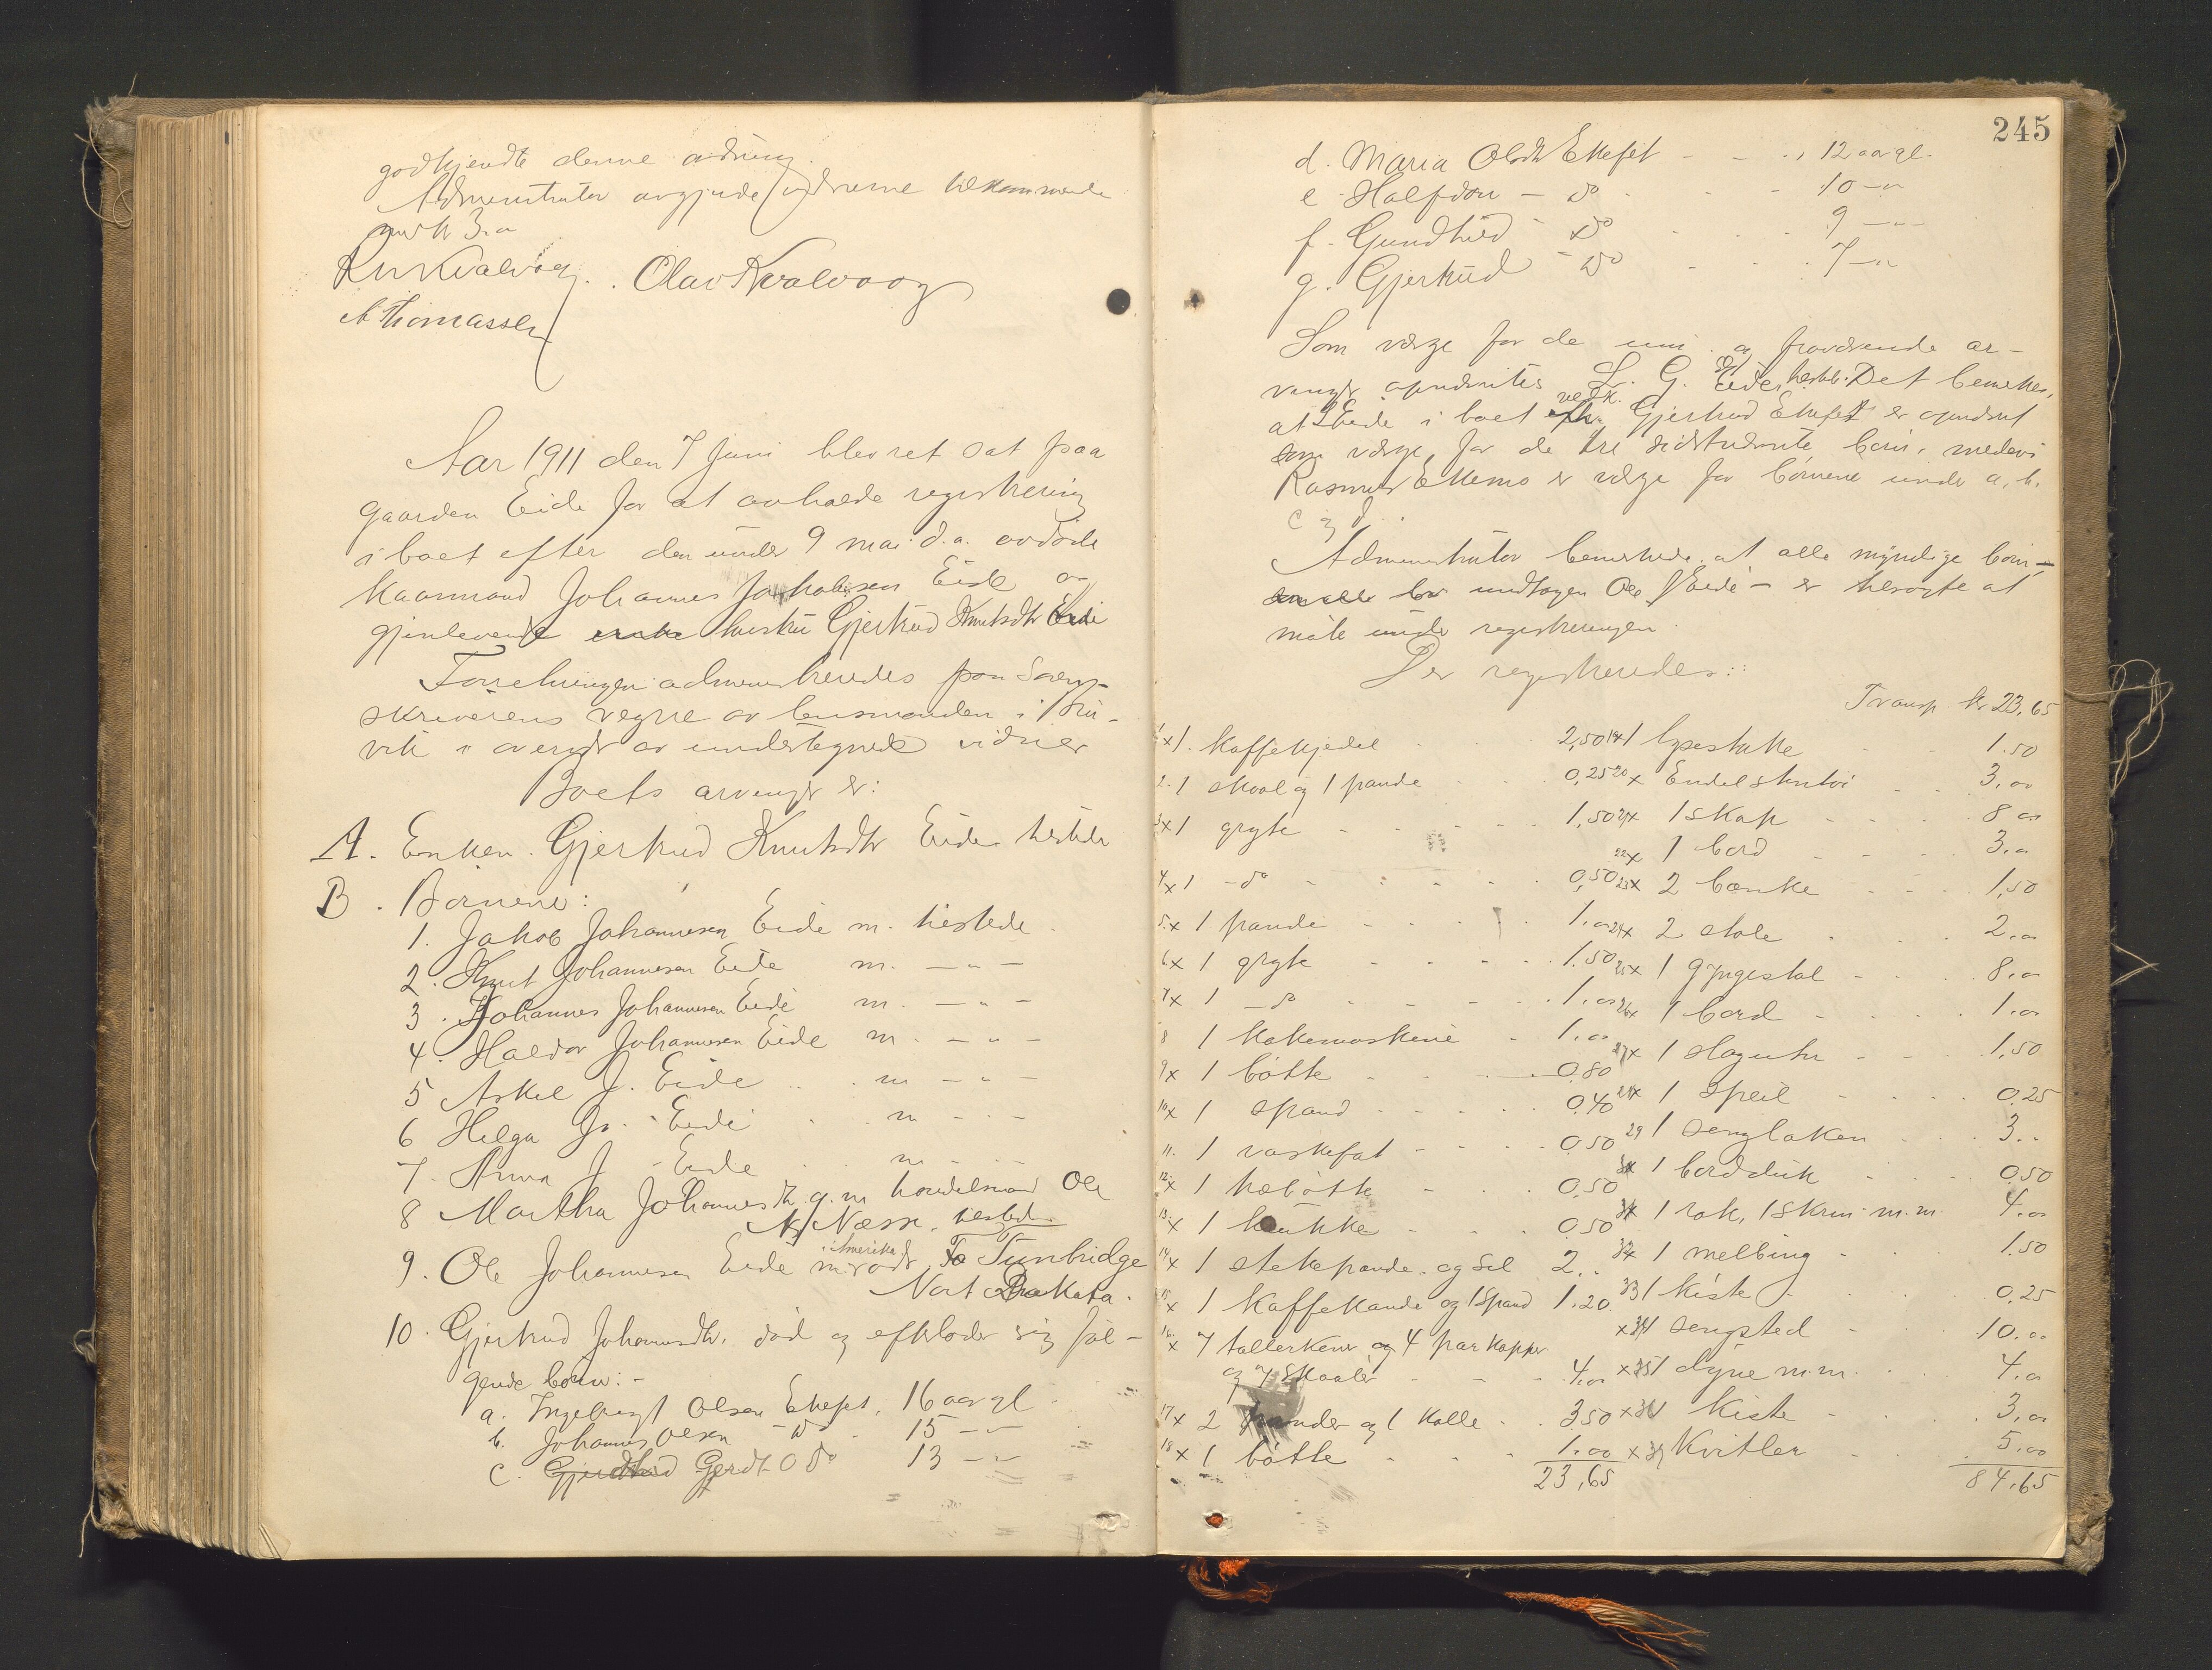 godkjendte denne ordning.
Administrator avgjorde vidnerne tilkommende
med kr 3.00
Kn Kvalvaag. Olav Kvalvaag
A Thomassen
Aar 1911 den 7 Juni blev ret sat paa
gaarden Eide for at avholde registrering
i boet efter den under 9 mai d.a. avdøde
kaarmand Johannes Jakobsen Eide og
gjenlevende enke hustru Gjertrud Knutsdtr Eide
Forretningen administreredes paa Soren-
skriverens vegne av lensmanden i
vik i overvær av undertegnede vidner
Boets arvinger er:
A. Enken Gjertrud Knutsdtr Eide hersteds
B. Børnene:
1. Jakob Johannesen Eide m. herstede.
2. Knut Johannesen Eide m. — " —
3. Johannes Johannesen Eide m. — " —
4. Haldor Johannesen Eide m. — " —
5 Askel J. Eide m — " —
6 Helga Js. Eide m — " —
7. Anna J. Eide m — " —
8 Martha Johannesdtr. g.m. handelsmand Ole
Næss, hersteds
9. Ole Johannesen Eide m adr i Amerika Tunbridge
Nort Dakota.
10. Gjertrud Johannesdtr. død og efterlader sig føl-
gende børn: -
a. Ingebrigt Olsen Ekeset, 16 aar gl.
b. Johannes Olsen do 15 — "
c. Gjerdtrud Gerdt O do 13 — "
245
d. Maria Olsdtr Ekeset - - " 12 aar gl.
e. Halfdan - do - - 10 — "
f. Gundhild - do - - 9 — "
g. Gjertrud - do - - 7 — "
Som verge for de um. og fraværende ar-
vinger opnævntes L. G. Eide hersteds. Det bemerkes,
at Eide i boet vedk. Gjertrud Ekeset er opnævnt
som verge for de tre sidstnævnte børn, medens
Rasmus Ekernes er verge for børnene under a, b.
c og d.
Administrator bemerkede at alle myndige børn -
undtagen Ole J Eide - er tilsagte at
møte under registreringen.
Der registreredes::
Transp. kr 23,65
1 x 1. Kaffekjedel 2,50
2. 1 skaal og 1 pande 0,25
3 x 1 gryte 1,50
4 x 1 - do 0,50
5 x 1 pande 1.00
6 x 1 gryte 1.50
7 x 1 - do 1.00
8 1 Kakemaskine 1.00
9 x 1 bøtte 0.80
10 x 1 spand 0.40
11. 1 vaskefat 0.50
12 x 1 træbøtte 0.50
13 x 1 krukke 0.50
14 x 1 stekepande og sil 2..
15 x 1 Kaffekande og 1 Spand 1.20.
16 x 7 tallerkener og 4 par kopper
og 7 Skaaler 4.00
17 x 2 spander og 1 Kolle 3.50
18 x 1 bøtte 1.00
23,65
19 x 1 lysestake 1.50
20 x Endel stentøi 3.00
21 x 1 skap 8 00
22 x 1 bord 3.00
23 x 2 bænke 1,50
24 x 2 stole 2.00
25 x 1 gyngestol 8.00
26 x 1 bord 1.00
27 x 1 slaguhr 1.50
28 x 1 speil 0.25
29 1 senglaken 3..
30 x 1 bordduk 0.50
31 x 1 rok, 1 skrin m.m. 4.00
32 x 1 melbing 1.50
33 1 kiste 0.25
x 34 1 sengsted 10.00
x 35 1 dyne m.m. 4.00
x 36 1 Kiste 3.00
x 37 Kvitler 5.00
84.65